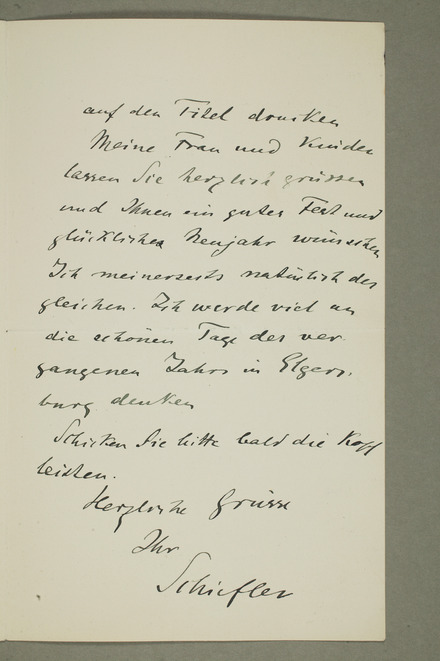 auf den Titel drucken
Meine Frau und Kinder
lassen Sie herzlich grüssen
und Ihnen ein gutes Fest und
glückliches Neujahr wünschen
Ich meinerseits natürlich des
gleichen. Ich werde viel an
die schönen Tage des ver-
gangenen Jahrs in Elgers-
burg denken
Schicken Sie bitte bald die Kopf
leisten.
Herzliche Grüsse
Ihr
Schiefler